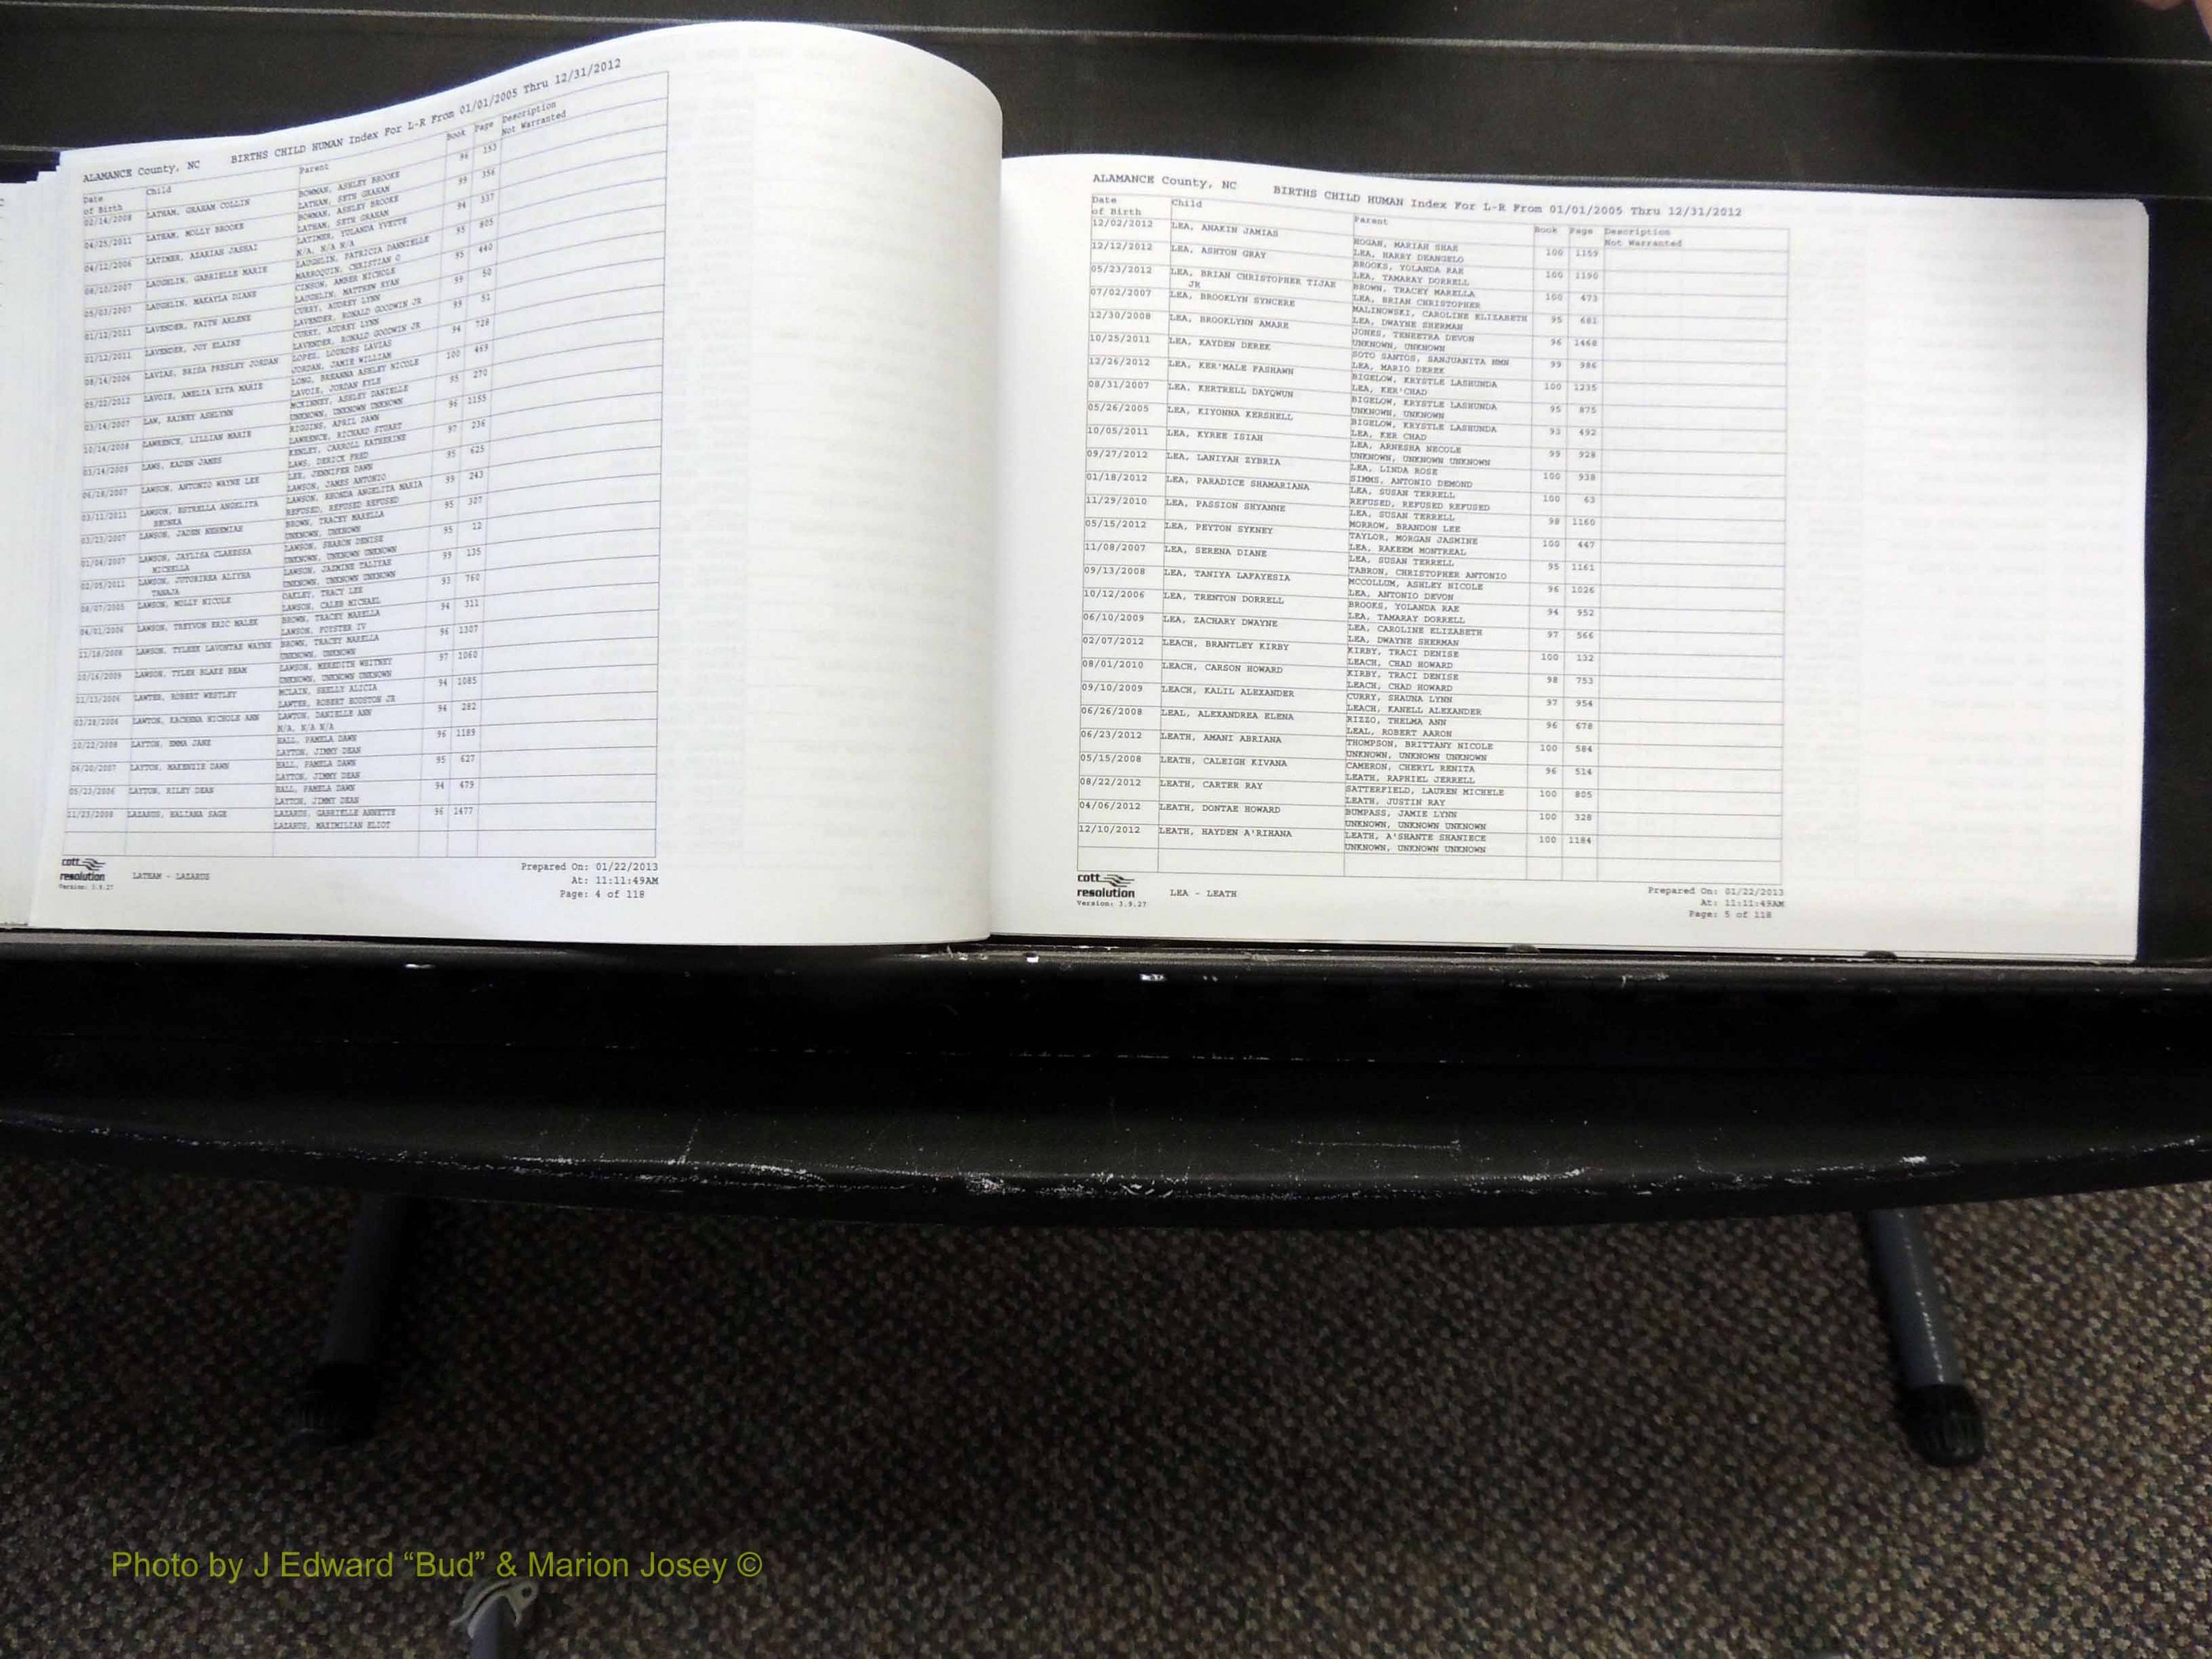 ALAMANCE County, NC BIRTHS CHILD HUMAN Index For L-R From 01/01/2005 Thru 12/31/2012
Date of Birth Child Parent Book Page Description Not Warranted
02/14/2008 LATHAM, GRAHAM COLLIN BOWMAN, ASHLEY BROOKE 96 153
LATHAM, SETH GRAHAM
04/25/2011 LATHAM, MOLLY BROOKE BOWMAN, ASHLEY BROOKE 99 356
LATHAM, SETH GRAHAM
04/12/2006 LATIMER, AZARIAS JASHAI LATIMER, YOLANDA YVETTE 94 337
N/A, N/A N/A
08/10/2007 LAUGHLIN, GABRIELLE MARIE LAUGHLIN, PATRICIA DANNIELLE 95 805
MARROQUIN, CHRISTIAN O
05/03/2007 LAUGHLIN, MAKAYLA DIANE CINSON, AMBER NICHOLE 95 440
LAUGHLIN, MATTHEW RYAN
01/12/2011 LAVENDER, FAITH ARLENE CURRY, AUDREY LYNN 99 50
LAVENDER, RONALD GOODWIN JR
01/12/2011 LAVENDER, JOY ELAINE CURRY, AUDREY LYNN 99 51
LAVENDER, RONALD GOODWIN JR
08/14/2006 LAVIAS, BRISA PRESLEY JORDAN LOPEZ, LOURDES LAVIAS 94 728
JORDAN, JAMIE WILLIAM
05/22/2012 LAVOIE, AMELIA RITA MARIE LONG, BREANNA ASHLEY NICOLE 100 469
LAVOIE, JORDAN KYLE
03/14/2007 LAW, RAINEY ASHLYNN MCKINNEY, ASHLEY DANIELLE 95 270
UNKNOWN, UNKNOWN UNKNOWN
10/14/2008 LAWRENCE, LILLIAN MARIE RIGGINS, APRIL DAWN 96 1155
LAWRENCE, RICHARD STUART
03/14/2009 LAWS, KADEN JAMES KENLEY, CARROLL KATHERINE 97 236
LAWS, DERICK FRED
06/18/2007 LAWSON, ANTONIO WAYNE LEE LEE, JENNIFER DAWN 95 625
LAWSON, JAMES ANTONIO
03/11/2011 LAWSON, ESTRELLA ANGELITA LAWSON, RHONDA ANGELITA MARIA 99 243
REFUSED, REFUSED REFUSED
03/23/2007 LAWSON, JADEN NEHEMIAH BROWN, TRACEY MARELLA 95 307
UNKNOWN, UNKNOWN
01/04/2007 LAWSON, JAYLISA CLARESSA MICHELLA LAWSON, SHARON DENISE 95 12
UNKNOWN, UNKNOWN UNKNOWN
02/05/2011 LAWSON, ALIYHA TANAJA LAWSON, JAZMINE TALIYAE 99 135
UNKNOWN, UNKNOWN UNKNOWN
08/07/2005 LAWSON, MOLLY NICOLE OAKLEY, TRACY LEE 93 760
LAWSON, CALEB MICHAEL
04/01/2006 LAWSON, TREYVON ERIC MALEK BROWN, TRACEY MARELLA 94 311
LAWSON, FOYSTER IV
11/18/2008 LAWSON, TYLEEK LAVONTAE WAYNE BROWN, TRACEY MARELLA 96 1307
UNKNOWN, UNKNOWN
10/16/2009 LAWSON, TYLER BLAKE BEAM LAWSON, MEREDITH WHITNEY 97 1060
UNKNOWN, UNKNOWN UNKNOWN
11/13/2006 LAWTER, ROBERT WESTLEY MCLAIN, SHELLY ALICIA 94 1085
LAWTER, ROBERT HOUSTON JR
03/28/2006 LAWTON, KACHENA NICHOLE ANN LAWTON, DANIELLE ANN 94 282
N/A, N/A N/A
10/22/2008 LAYTON, EMMA JANE HALL, PAMELA DAWN 96 1189
LAYTON, JIMMY DEAN
06/20/2007 LAYTON, MAKENZIE DAWN HALL, PAMELA DAWN 95 627
LAYTON, JIMMY DEAN
05/23/2006 LAYTON, RILEY DEAN HALL, PAMELA DAWN 94 479
LAYTON, JIMMY DEAN
11/23/2008 LAZARUS, HALIANA SAGE LAZARUS, GABRIELLE ANNETTE 96 1477
LAZARUS, MAXIMILIAN ELIOT
cott resolution
Version: 3.9.27
LATHAM - LAZARUS
Prepared On: 01/22/2013
At: 11:11:49AM
Page: 4 of 118
ALAMANCE County, NC BIRTHS CHILD HUMAN Index For L-R From 01/01/2005 Thru 12/31/2012
Date of Birth Child Parent Book Page Description Not Warranted
12/02/2012 LEA, ANAKIN JAMIAS HOGAN, MARIAH SHAE 100 1159
LEA, HARRY DEANGELO
12/12/2012 LEA, ASHTON GRAY BROOKS, YOLANDA RAE 100 1190
LEA, TAMARAY DORRELL
05/23/2012 LEA, BRIAN CHRISTOPHER TIJAE JR BROWN, TRACEY MARELLA 100 473
LEA, BRIAN CHRISTOPHER
07/02/2007 LEA, BROOKLYN SYNCERE MALINOWSKI, CAROLINE ELIZABETH 95 681
LEA, DWAYNE SHERMAN
12/30/2008 LEA, BROOKLYNN AMARE JONES, TENEETRA DEVON 96 1468
UNKNOWN, UNKNOWN
10/25/2011 LEA, KAYDEN DEREK SOTO SANTOS, SANJUANITA NMN 99 986
LEA, MARIO DEREK
12/26/2012 LEA, KER'MALE FASHAWN BIGELOW, KRYSTLE LASHUNDA 100 1235
LEA, KER'CHAD
08/31/2007 LEA, KERTRELL DAYQWUN BIGELOW, KRYSTLE LASHUNDA 95 875
UNKNOWN, UNKNOWN
05/26/2005 LEA, KIYONNA KERSHELL BIGELOW, KRYSTLE LASHUNDA 93 492
LEA, KER CHAD
10/05/2011 LEA, KYREE ISIAH LEA, ARNESHA NECOLE 99 928
UNKNOWN, UNKNOWN UNKNOWN
09/27/2012 LEA, LANIYAH ZYBRIA LEA, LINDA ROSE 100 938
SIMMS, ANTONIO DEMOND
01/18/2012 LEA, PARADICE SHAMARIANA LEA, SUSAN TERRELL 100 63
REFUSED, REFUSED REFUSED
11/29/2010 LEA, PASSION SHYANNE LEA, SUSAN TERRELL 98 1160
MORROW, BRANDON LEE
05/15/2012 LEA, PEYTON SYKNEY TAYLOR, MORGAN JASMINE 100 447
LEA, RAKEEM MONTREAL
11/08/2007 LEA, SERENA DIANE LEA, SUSAN TERRELL 95 1161
TABRON, CHRISTOPHER ANTONIO
09/13/2008 LEA, TANIYA LAFAYESIA MCCOLLUM, ASHLEY NICOLE 96 1026
LEA, ANTONIO DEVON
10/12/2006 LEA, TRENTON DORRELL BROOKS, YOLANDA RAE 94 952
LEA, TAMARAY DORRELL
06/10/2009 LEA, ZACHARY DWAYNE LEA, CAROLINE ELIZABETH 97 566
LEA, DWAYNE SHERMAN
02/07/2012 LEACH, BRANTLEY KIRBY KIRBY, TRACI DENISE 100 132
LEACH, CHAD HOWARD
08/01/2010 LEACH, CARSON HOWARD KIRBY, TRACI DENISE 98 753
LEACH, CHAD HOWARD
09/10/2009 LEACH, KALIL ALEXANDER CURRY, SHAUNA LYNN 97 954
LEACH, KANELL ALEXANDER
06/26/2008 LEAL, ALEXANDREA ELENA RIZZO, THELMA ANN 96 678
LEAL, ROBERT AARON
06/23/2012 LEATH, AMANI ABRIANA THOMPSON, BRITTANY NICOLE 100 584
UNKNOWN, UNKNOWN UNKNOWN
05/15/2008 LEATH, CALEIGH KIVANA CAMERON, CHERYL RENITA 96 514
LEATH, RAPHIEL JERRELL
08/22/2012 LEATH, CARTER RAY SATTERFIELD, LAUREN MICHELE 100 805
LEATH, JUSTIN RAY
04/06/2012 LEATH, DONTAE HOWARD BUMPASS, JAMIE LYNN 100 328
UNKNOWN, UNKNOWN UNKNOWN
12/10/2012 LEATH, HAYDEN A'RIHANA LEATH, A'SHANTE SHANIECE 100 1184
UNKNOWN, UNKNOWN UNKNOWN
cott resolution
Version: 3.9.27
LEA - LEATH
Prepared On: 01/22/2013
At: 11:11:49AM
Page: 5 of 118
Photo by J Edward “Bud” & Marion Josey ©